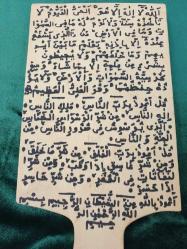 الله لا إله إلا هو الحي القيوم لا
تأخذه سنة ولا نوم له ما في السموا
ت وما في الأرض من ذا الذي يشفع
عنده إلا بإذنه يعلم ما بين أيد
يهم وما خلفهم ولا يحيطون بشيء
من علمه إلا بما شاء وسع
كرسيه السموات والأرض ولا يؤ
ده حفظهما وهو العلي العظيم
قل أعوذ برب الناس ملك الناس
إله الناس من شر الوسواس الخناس
الذي يوسوس في صدور الناس من
الجنة والناس
قل أعوذ برب الفلق من شر ما خلق
ومن شر غاسق إذا وقب ومن شر
النفاثات في العقد ومن شر حاسد
إذا حسد
أعوذ بالله من الشيطان الرجيم بسم
الله الرحمن الرحيم